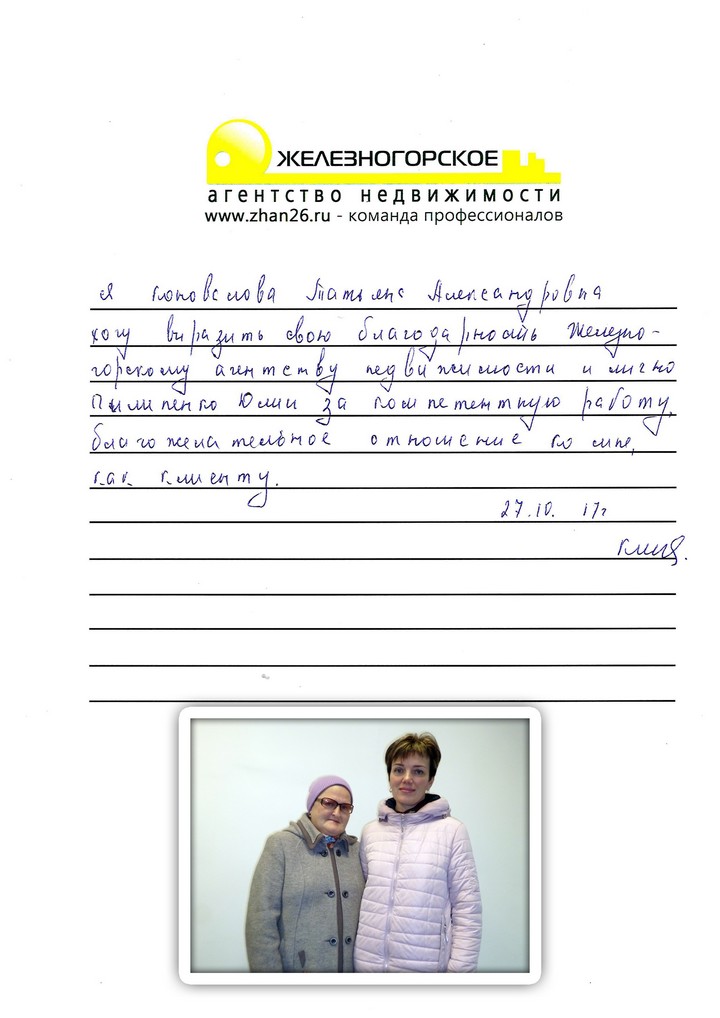 ЖЕЛЕЗНОГОРСКОЕ
агентство недвижимости
www.zhan26.ru - команда профессионалов
я Коновалова Татьяна Александровна
хочу выразить свою благодарность Железно-
горскому агентству недвижимости и лично
Пилипенко Юлии за компетентную работу,
благожелательное отношение ко мне,
как клиенту.
27.10. 17г